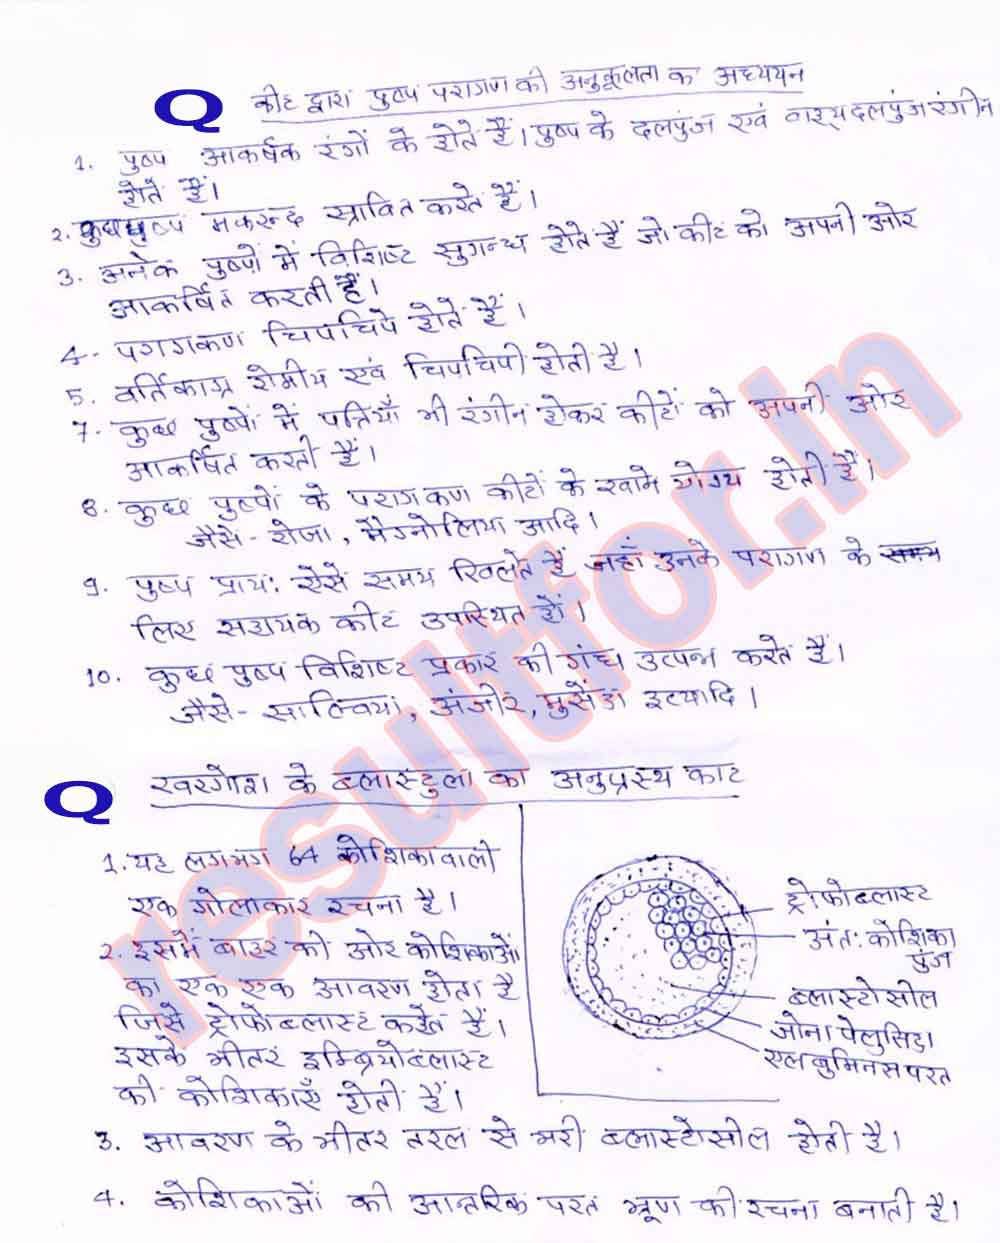 Q कीट द्वारा पुष्प परागण की अनुकूलता क अध्ययन
1. पुष्प आकर्षक रंगों के होते हैं। पुष्प के दलपुंज एवं वाह्यदलपुंज रंगीन
होते हैं।
2. कुछ पुष्प मकरन्द स्रावित करते हैं।
3. अनेक पुष्पों में विशिष्ट सुगन्ध होते हैं जो कीट को अपनी ओर
आकर्षित करती हैं।
4- परागकण चिपचिपे होते हैं।
5. वर्तिकाग्र रोमीय एवं चिपचिपी होती है।
7- कुछ पुष्पों में पतियाँ भी रंगीन होकर कीटों को अपनी ओर
आकर्षित करती हैं।
8. कुछ पुष्पों के परागकण कीटों के खाने योग्य होती हैं।
जैसे- रोजा, मैग्नोलिया आदि।
9. पुष्प प्राय: ऐसे समय खिलते हैं जहाँ उनके परागण के
लिए सहायक कीट उपस्थित हों।
10. कुछ पुष्प विशिष्ट प्रकार की गंध उत्पन्न करते हैं।
जैसे- साल्विया, अंजीर, मुसेंडा इत्यादि।
Q खरगोश के ब्लास्टुला का अनुप्रस्थ काट
1. यह लगभग 64 कोशिकावाली
एक गोलाकार रचना है।
2. इसमें बाहर की ओर कोशिकाओं
का एक एक आवरण होता है
जिसे ट्रोफोब्लास्ट कहते हैं।
इसके भीतर इम्ब्रियोब्लास्ट
की कोशिकाएँ होती हैं।
ट्रोफोब्लास्ट
अंत: कोशिका
पुंज
ब्लास्टोसील
जोना पेलुसिडा
एलबुमिनस परत
3. आवरण के भीतर तरल से भरी ब्लास्टोसील होती है।
4. कोशिकाओं की आन्तरिक परत भ्रूण की रचना बनाती है।
resultfor.in